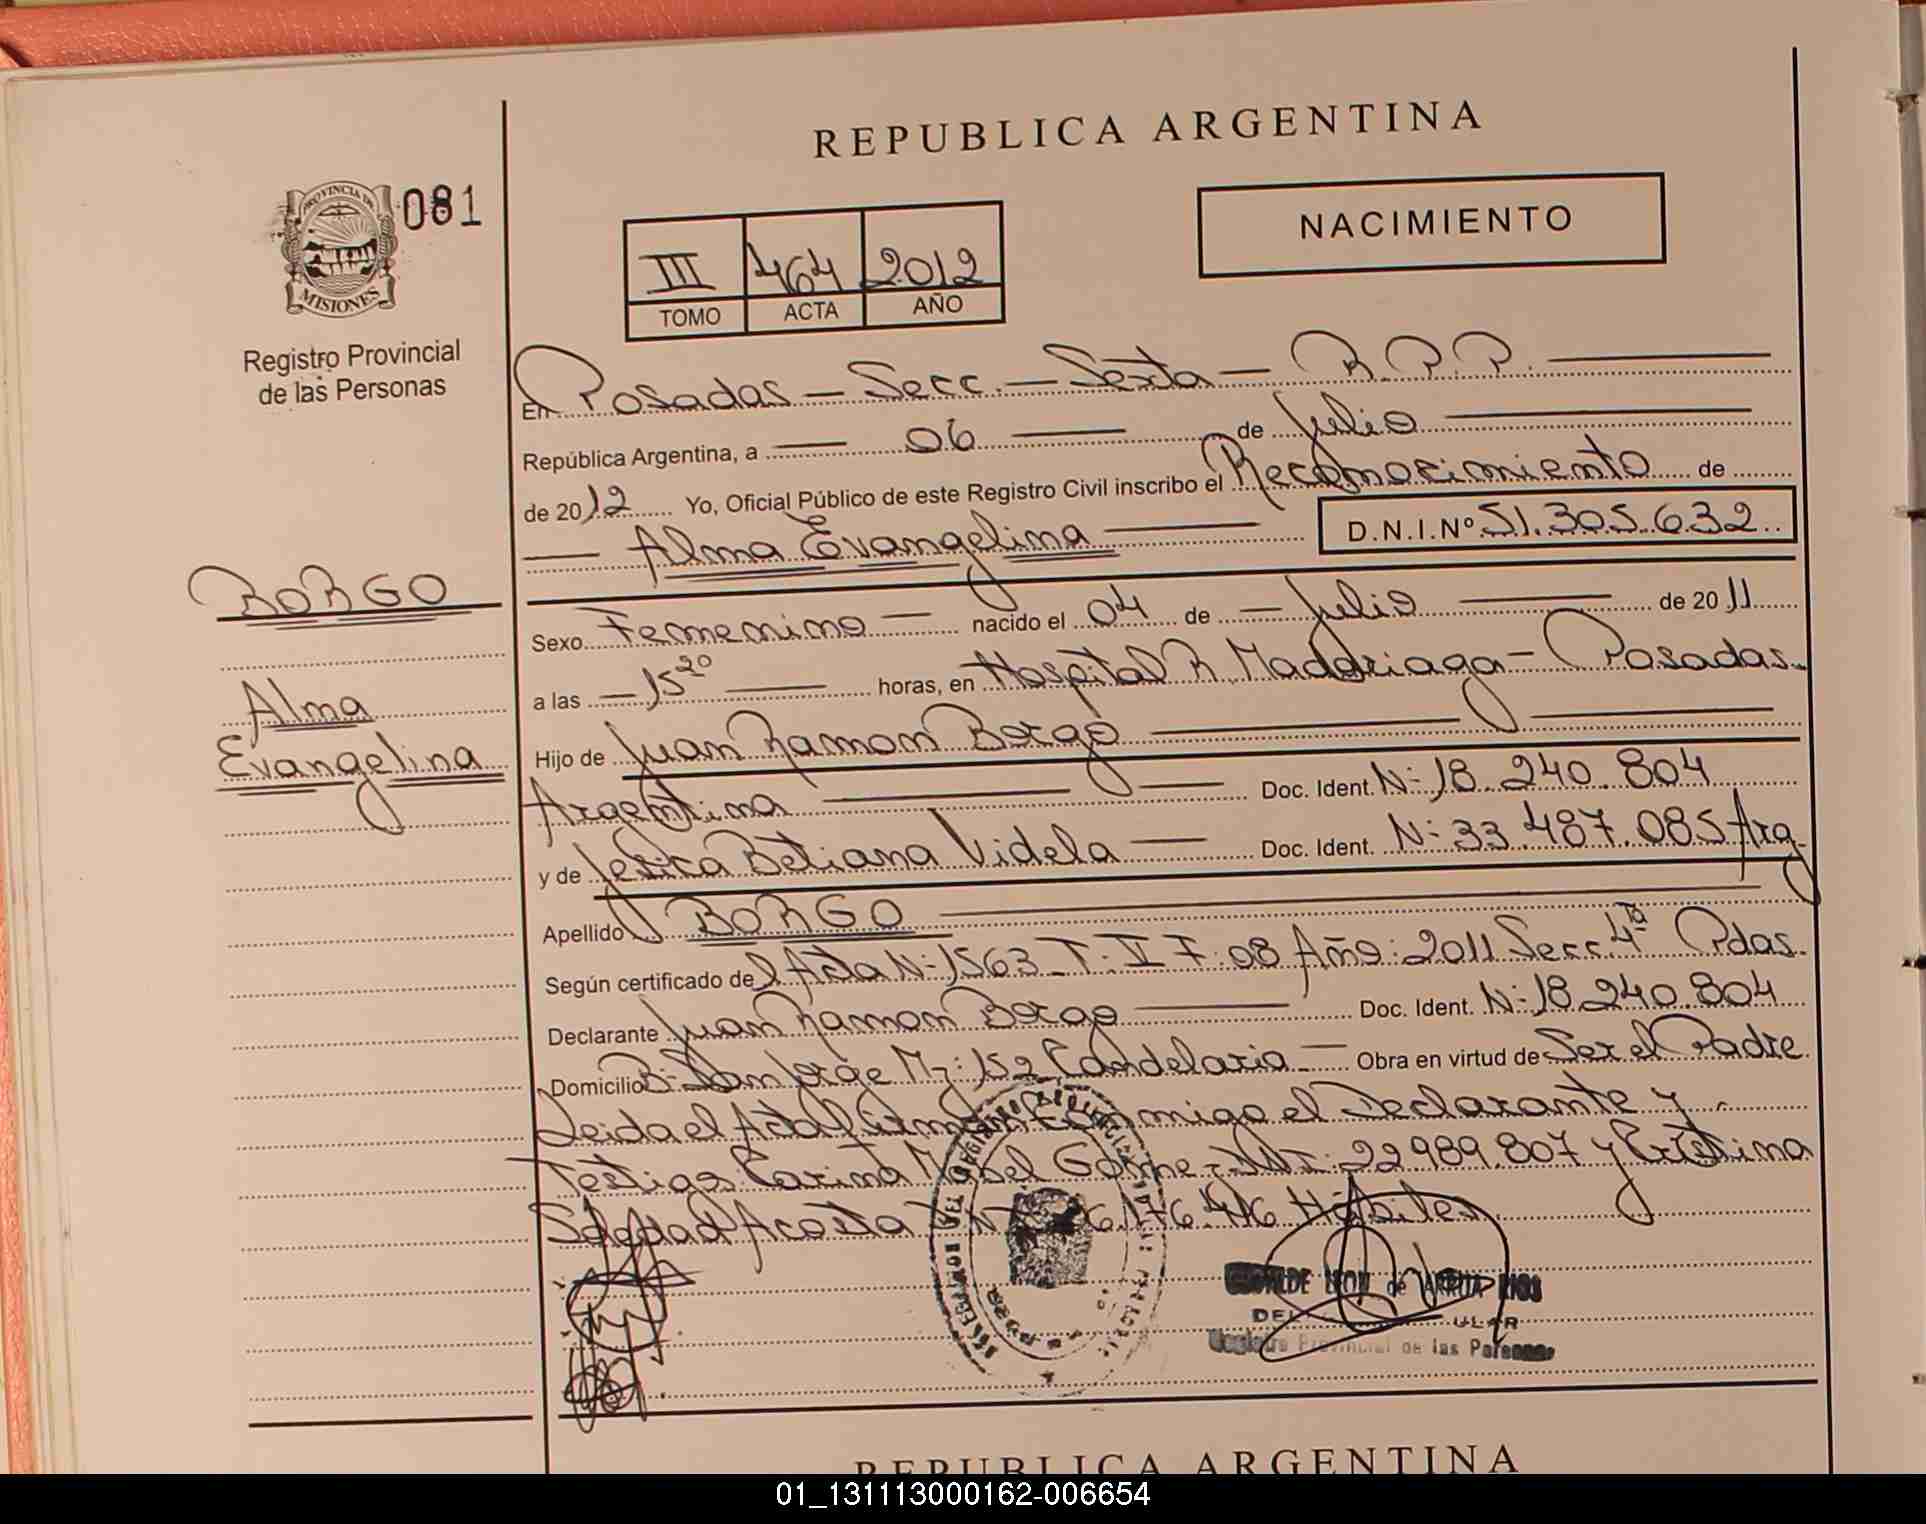 REPUBLICA ARGENTINA
PROVINCIA DE
MISIONES
081
Registro Provincial
de las Personas
NACIMIENTO
III 464 2012
TOMO ACTA AÑO
En Posadas — Secc. — Sexta — R.P.P.
República Argentina, a — 06 — de Julio
de 2012 Yo, Oficial Público de este Registro Civil inscribo el Reconocimiento de
— Alma Evangelina — D.N.I.Nº 51.305.632
BORGO
Alma
Evangelina
Sexo Femenino — nacido el 04 de — Julio — de 2011
a las — 15 20 — horas, en Hospital R. Madariaga - Posadas
Hijo de Juan Ramon Borgo —
Argentina — Doc. Ident. Nº 18.240.804
y de Jesica Betiana Videla — Doc. Ident. Nº 33.487.085 Arg
Apellido BORGO
Según certificado de l Acta Nº 1563 T: II F: 08 Año: 2011 Secc 4ta Pdas.
Declarante Juan Ramon Borgo — Doc. Ident. Nº 18.240.804
Domicilio Bº San Jorge Mz: 152 Candelaria — Obra en virtud de Ser el Padre
Leida el Acta firman conmigo el Declarante y
Testigos Carina Mabel 22.989.807 y Cristina
Soledad Acosta Hábiles
LEON de ARRUA RIOS
Provincial de las Personas
REPUBLICA ARGENTINA
01_131113000162-006654